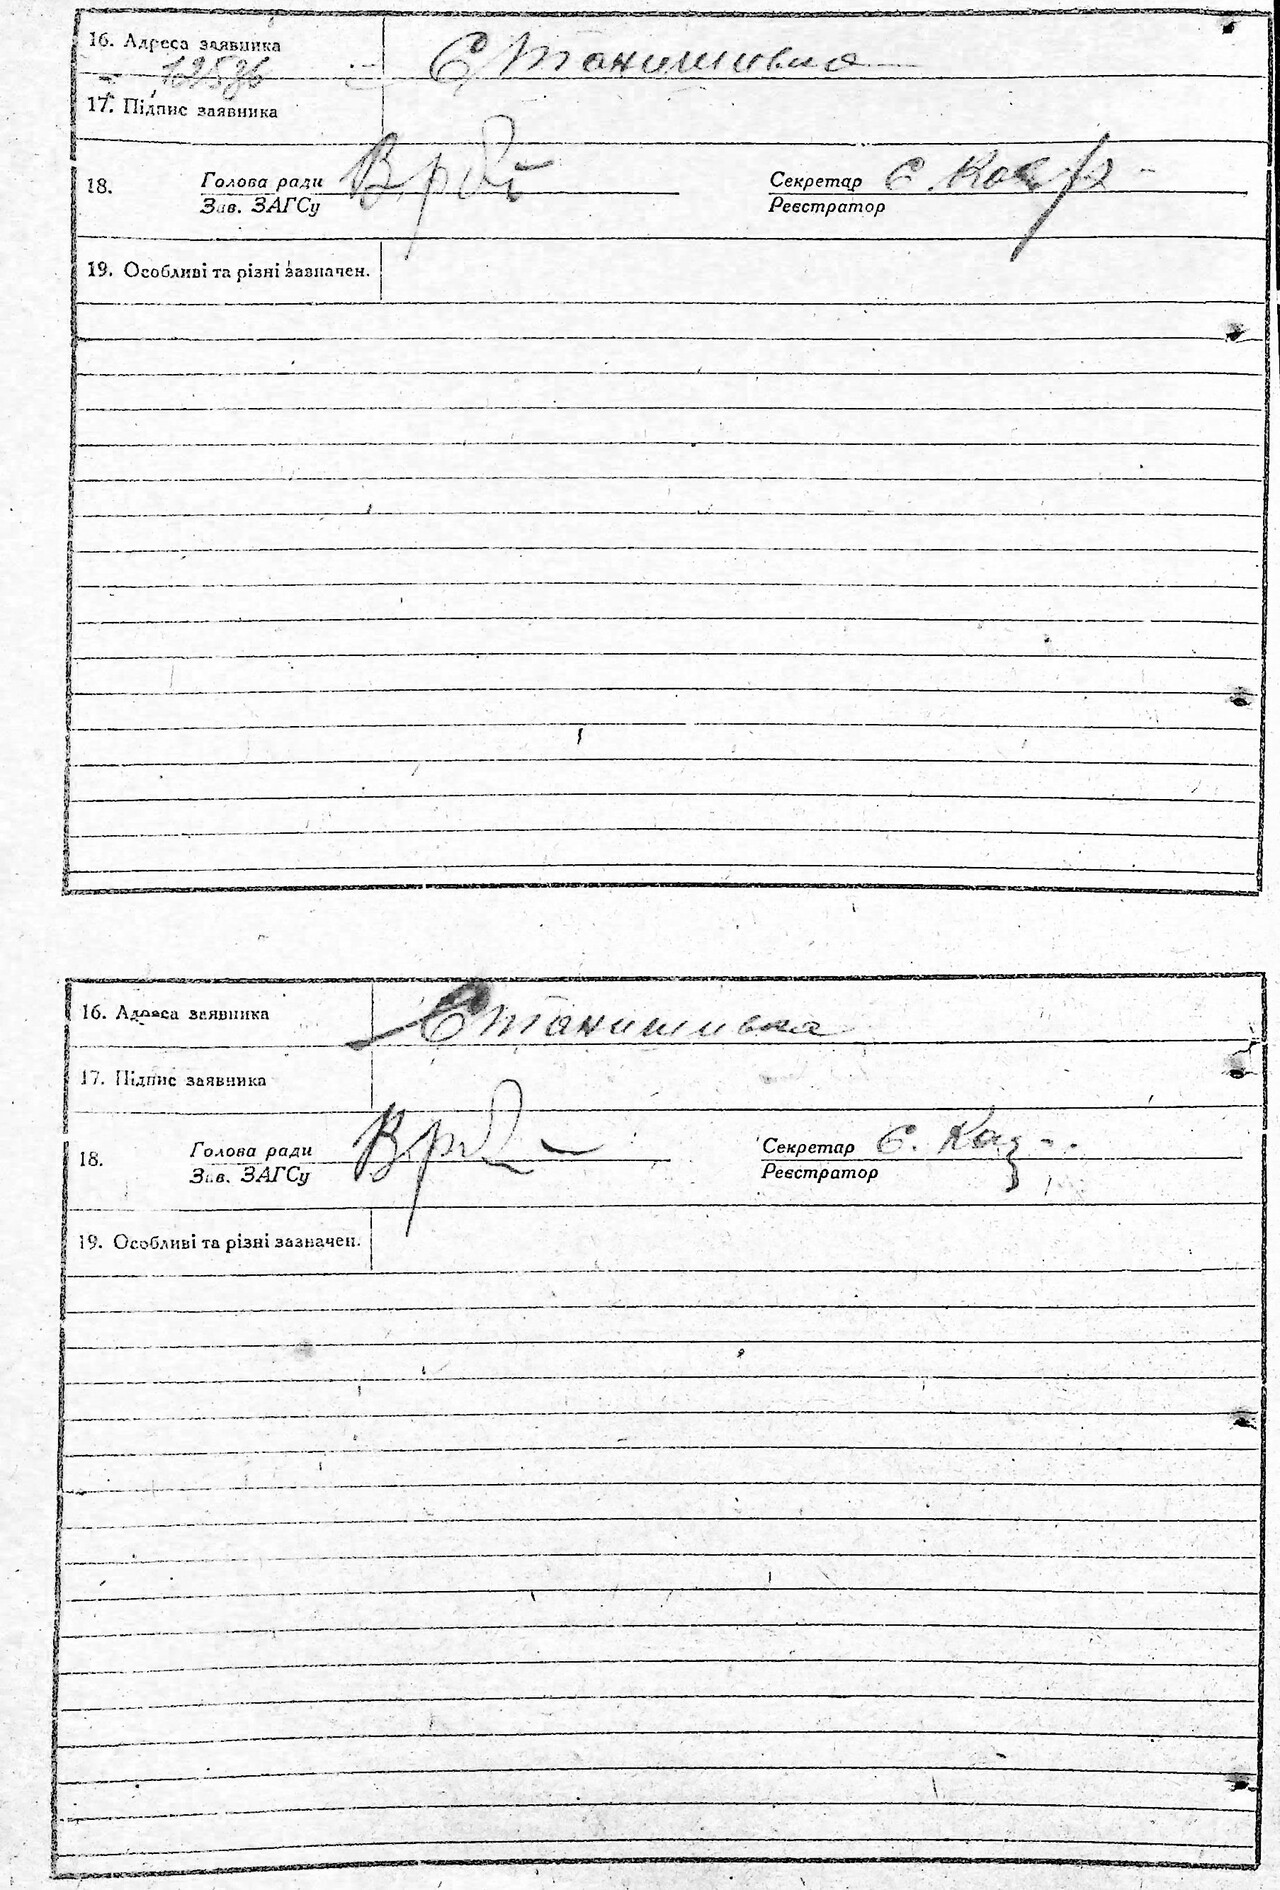 16. Адреса заявника Станишивка
17. Підпис заявника
18. Голова ради Секретар Є.
Зав. ЗАГСу Реєстратор
19. Особливі та різні зазначен.
16. Адреса заявника Станишивка
17. Підпис заявника
18. Голова ради Секретар Є.
Зав. ЗАГСу Реєстратор
19. Особливі та різні зазначен.